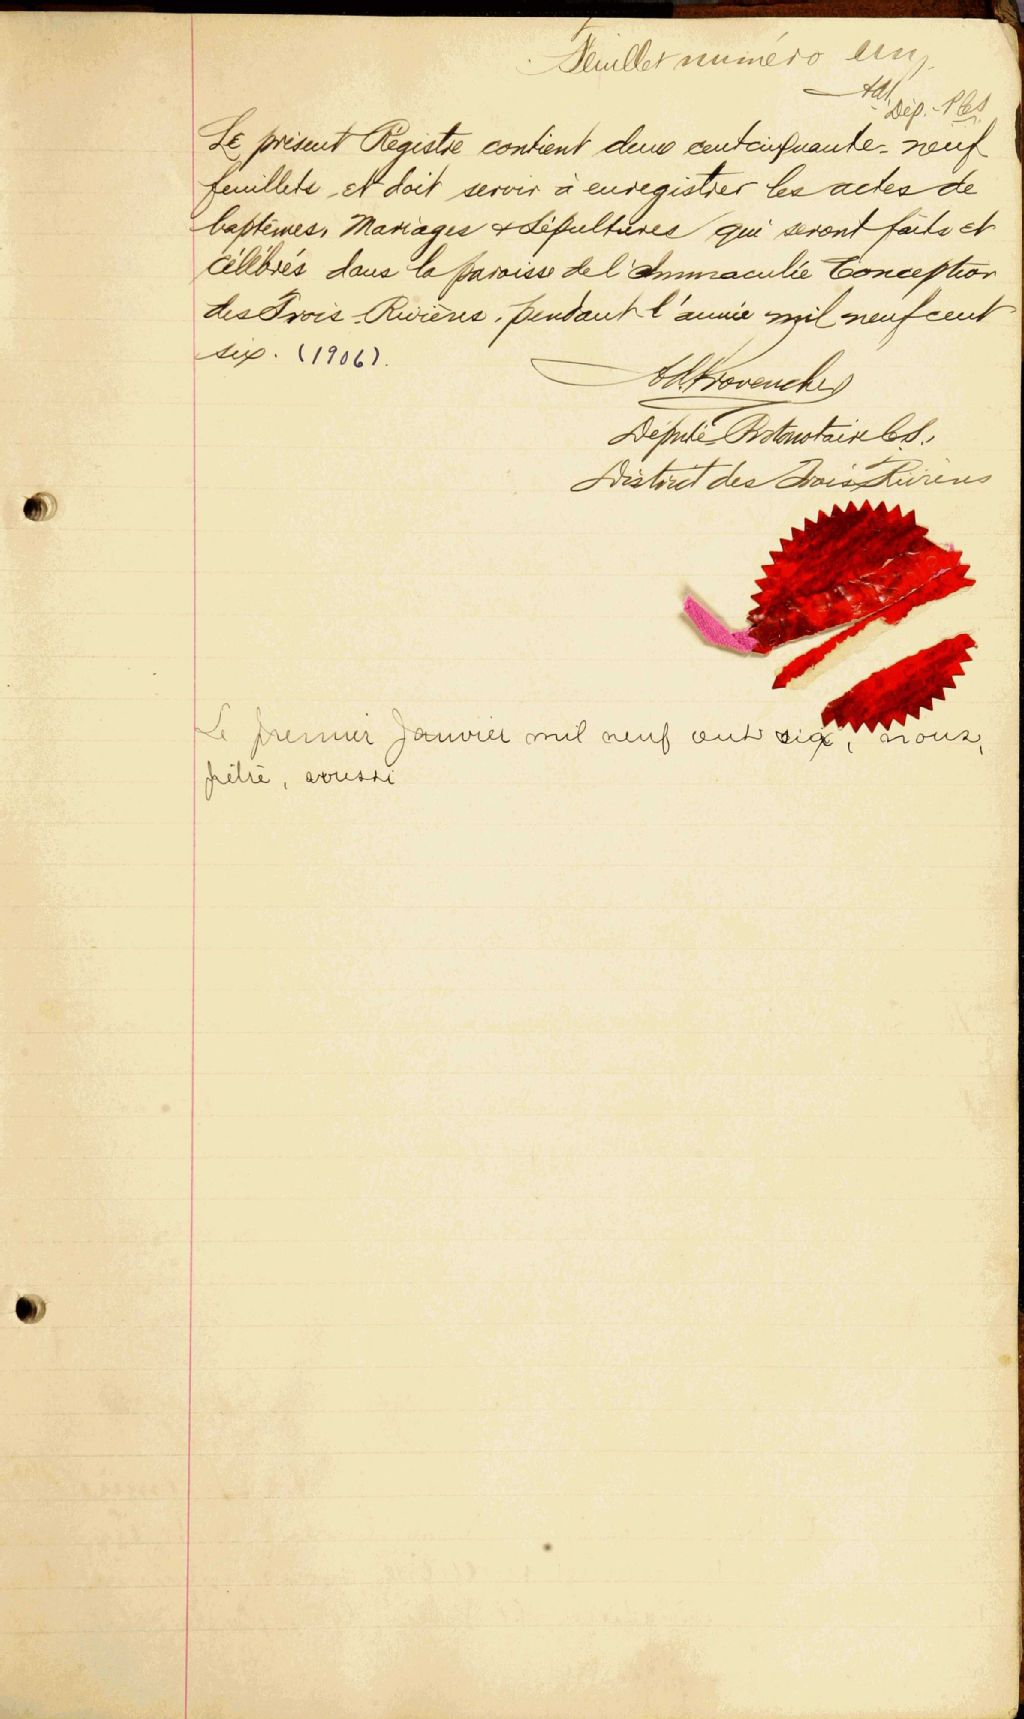 Feuillet numéro un,
Ad. Dép. P.C.S.
Le présent Régistre contient deux cent cinquante-neuf
feuillets et doit servir à enregistrer les actes de
baptêmes, Mariages & Sépultures qui seront faits et
célébrés dans la paroisse de l'Immaculée Conception
des Trois-Rivières, pendant l'année mil neuf cent
six. (1906).
Ad. Provencher
Député Protonotaire C.S.,
District des Trois Rivières
Le premier Janvier mil neuf cent six, nous,
prêtre, soussi